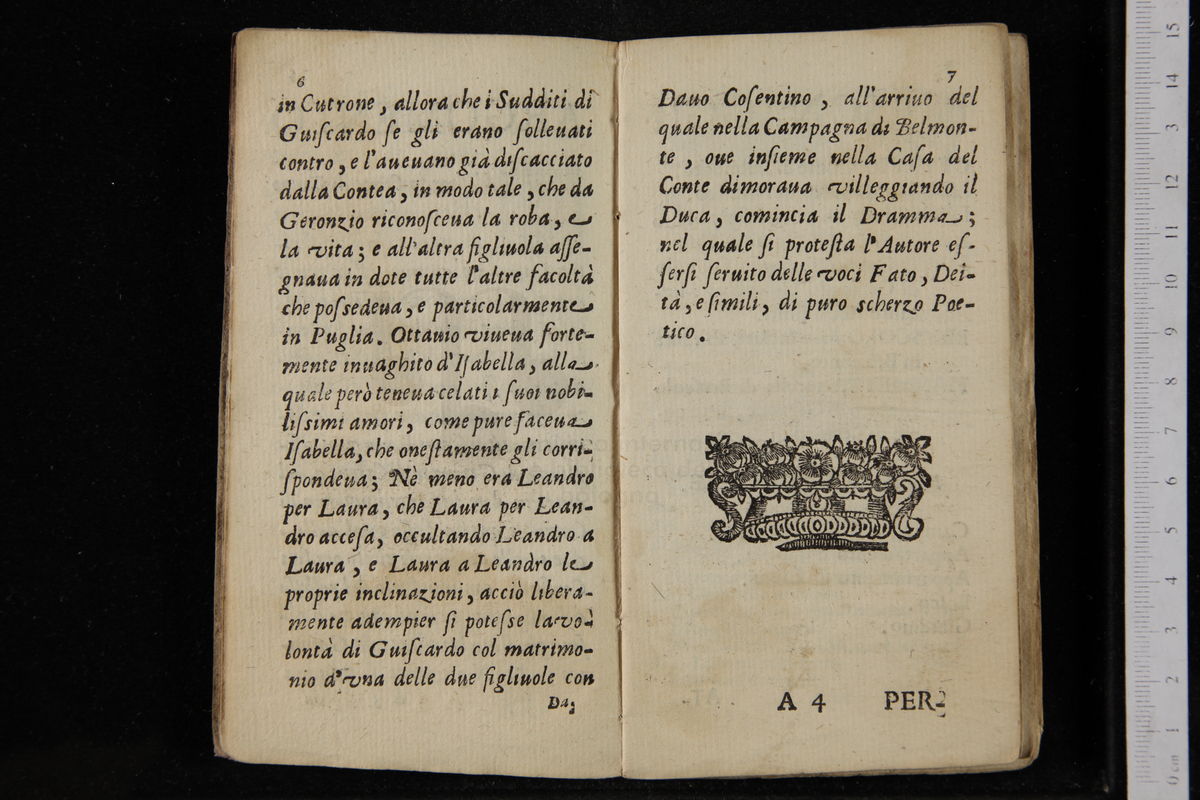 6
in Cutrone, allora che i Sudditi di
Guiſcardo ſe gli erano ſolleuati
contro, e l'aueuano già diſcacciato
dalla Contea, in modo tale, che da
Geronzio riconoſceua la roba, e
la vita; e all'altra figliuola aſſe-
gnaua in dote tutte l'altre facoltà
che poſſedeua, e particolarmente
in Puglia. Ottauio viueua forte-
mente inuaghito d'Iſabella, alla
quale però teneua celati i ſuoi nobi-
liſſimi amori, come pure faceua
Iſabella, che oneſtamente gli corri-
ſpondeua; Nè meno era Leandro
per Laura, che Laura per Lean-
dro acceſa, occultando Leandro a
Laura, e Laura a Leandro le
proprie inclinazioni, acciò libera-
mente adempier ſi poteſſe la vo-
lontà di Guiſcardo col matrimo-
nio d'vna delle due figliuole con
Da-
7
Dauo Coſentino, all'arriuo del
quale nella Campagna di Belmon-
te, oue inſieme nella Caſa del
Conte dimoraua villeggiando il
Duca, comincia il Dramma;
nel quale ſi proteſta l'Autore eſ-
ſerſi ſeruito delle voci Fato, Dei-
tà, e ſimili, di puro scherzo Poe-
tico.
A 4 PER-